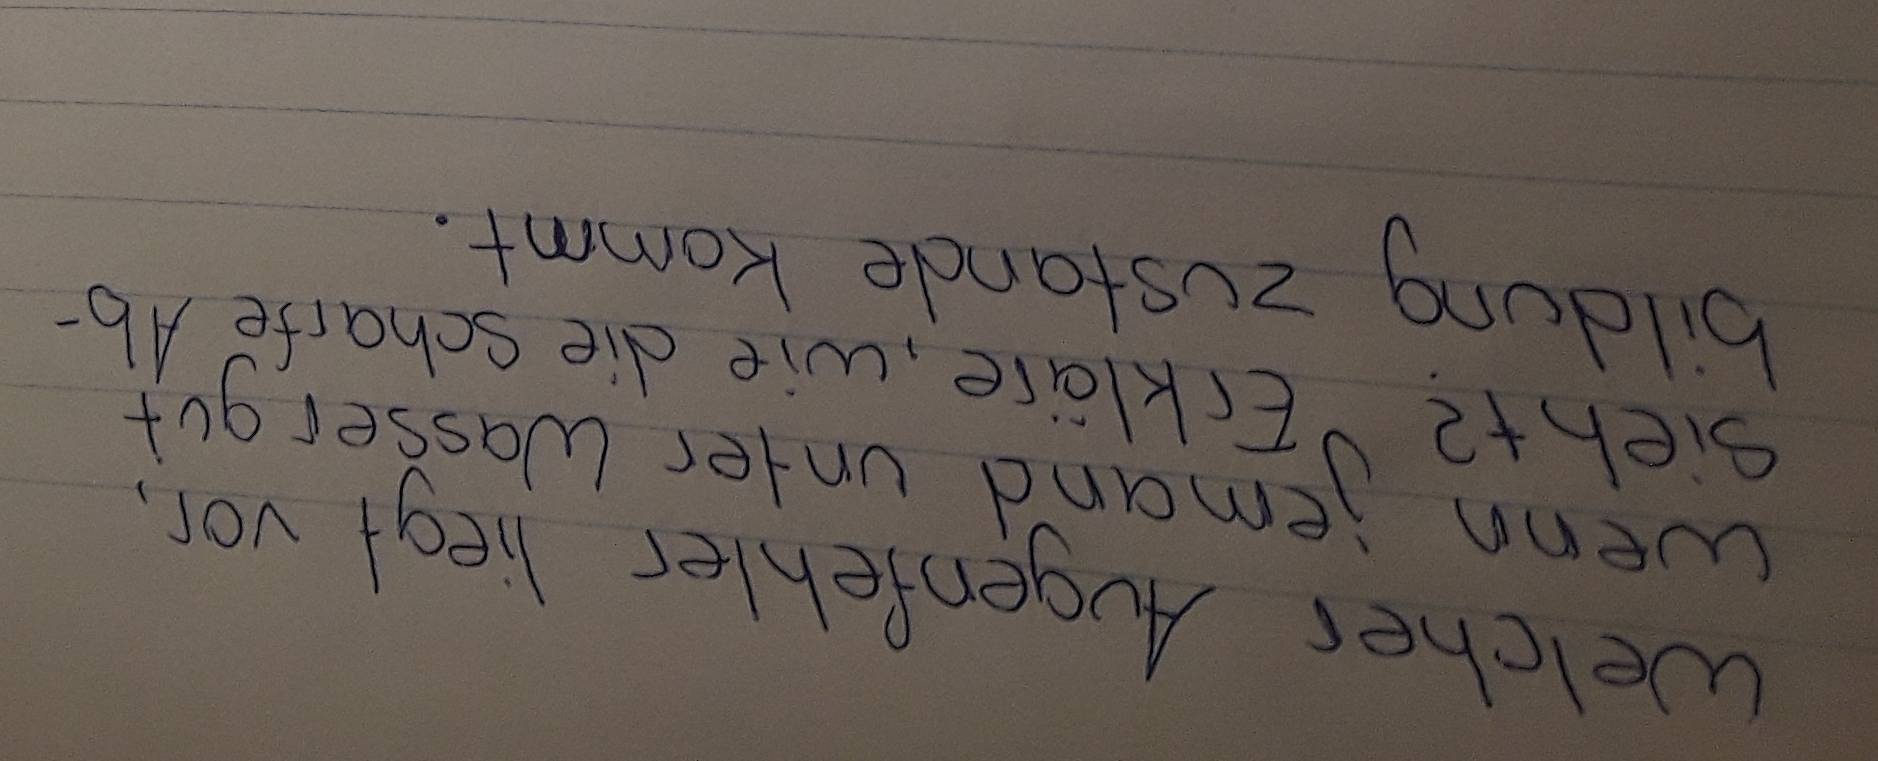 Welcher Augenfehler liegt vor,
wenn jemand unter Wasser gut
sieht? Erkläre, wie die scharfe Ab-
bildung zustande kommt.